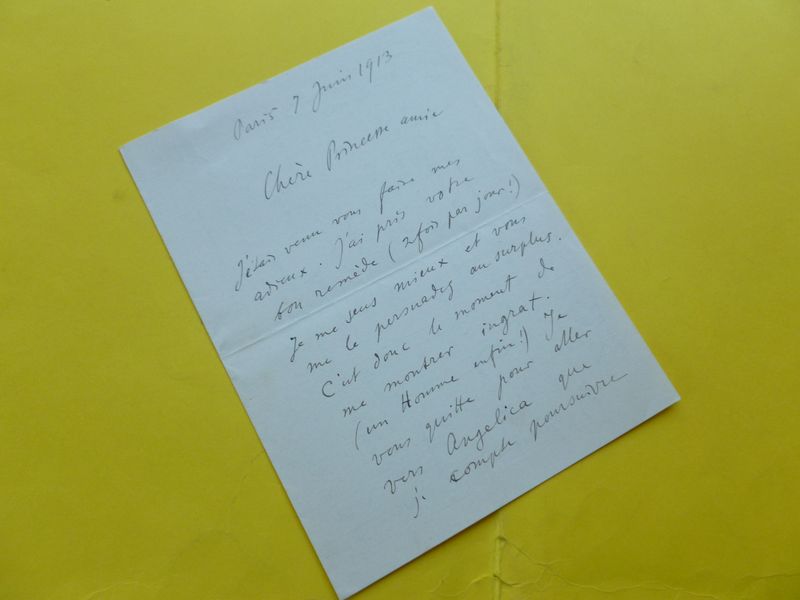 Paris 7 Juin 1913
Chère Princesse amie
J'étais venu vous faire mes
adieux. J'ai pris votre
bon remède (2 fois par jour!)
Je me sens mieux et vous
me le persuadez au surplus.
C'est donc le moment de
me montrer ingrat.
(un Homme enfin!) Je
vous quitte pour aller
vers Angelica que
je compte poursuivre